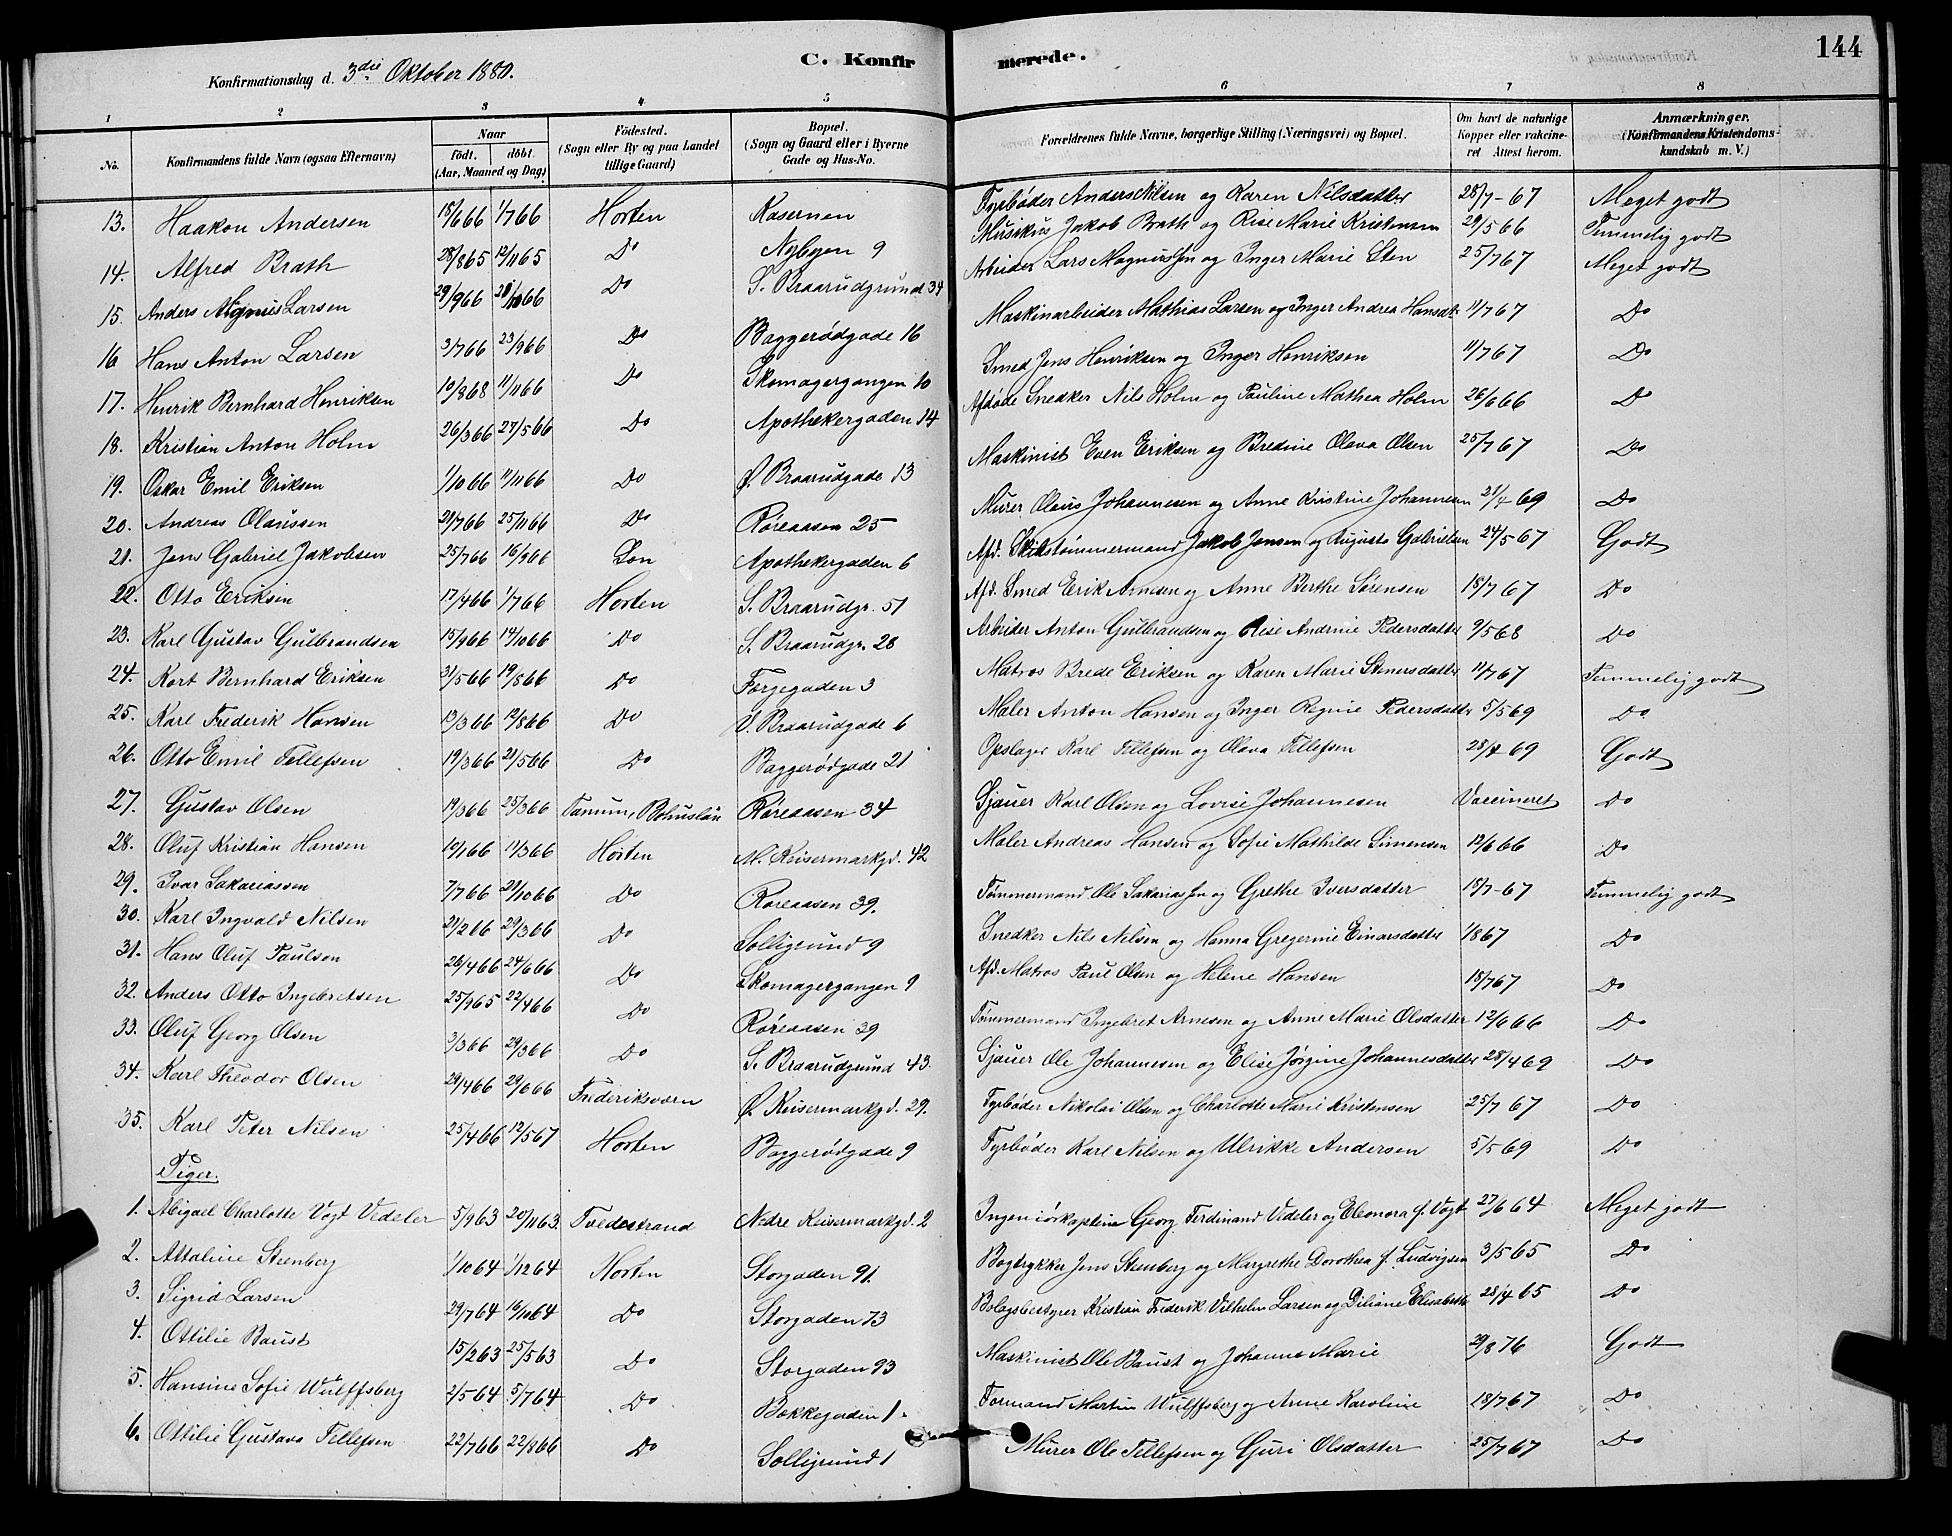 144
C. Konfirmerede.
Konfirmationsdag d. 3die Oktober 1880.
1 2 3 4 5 6 7 8
No. | Konfirmandens fulde Navn (ogsaa Efternavn) | Naar født. døbt. (Aar, Maaned og Dag) | Fødested. (Sogn eller By og paa Landet tillige Gaard) | Bopæl. (Sogn og Gaard eller i Byerne Gade og Hus-No. | Forældrenes fulde Navne, borgerlige Stilling (Næringsvei) og Bopæl. | Om havt de naturlige Kopper eller vakcineret Attest herom. | Anmærkninger. (Konfirmandens Kristendomskundskab m. V.)
13. Haakon Andersen 18/6 66 1/7 66 Horten Kasernen Fyrbøder Anders Nilsen og Karen Nilsdatter 28/7-67 Meget godt
14. Alfred Brath 28/8 65 12/11 65 Do Nybyen 9 Musikus Jakob Brath og Rise Marie Kristensen 29/5 66 Temmelig godt
15. Anders Magnus Larsen 29/9 66 28/10 66 Do S. Braarudgrund 34 Arbeider Lars Magnussen og Inger Marie Sten 25/7 67 Meget godt
16 Hans Anton Larsen 3/7 66 23/9 66 Do Baggerødgade 16 Maskinarbeider Mathias Larsen og Inger Andrea Hansdt. 11/7 67 Do
17. Henrik Bernhard Henriksen 10/8 68 11/11 66 Do Skomagergangen 10 Smed Jens Henriksen og Inger Henriksen 11/7 67 Do
18. Kristian Anton Holm 26/3 66 27/5 66 Do Apothekergaden 14 Afdøde Snedker Nils Holm og Pauline Mathea Holm 26/6 66 Do
19. Oskar Emil Eriksen 1/10 66 11/11 66 Do Ø. Braarudgade 13 Maskinist Even Eriksen og Bredine Olava Olsen 25/7 67 Do
20. Andreas Olaussen 21/7 66 25/11 66 Do Røreaasen 25 Murer Olaus Johannesen og Anne Kristine Johannesen 21/4 69 Do
21. Jens Gabriel Jakobsen 25/7 66 16/9 66 Løn Apothekergaden 6 Afd. Skibstømmermand Jakob Jensen og Augusta Gabrielsen 24/5 67 Godt
22. Otto Eriksen 17/4 66 1/7 66 Horten S. Braarudgr. 51 Afd. Smed Erik Arnesen og Anne Berthe Sørensen 18/7 67 Do
23. Karl Gustav Gulbrandsen 15/9 66 14/10 66 Do S. Braarudgr. 28 Arbeider Anton Gulbrandsen og Elise Andrine Pedersdatter 9/5 68 Do
24. Kort Bernhard Eriksen 31/5 66 19/8 66 Do Torgegaden 3 Matros Brede Eriksen og Karen Marie Stenersdatter 11/7 67 Temmelig godt
25. Karl Frederik Hansen 13/3 66 12/8 66 Do V. Braarudgade 6 Maler Anton Hansen og Inger Regine Pedersdatter 5/5 69 Do
26. Otto Emil Tellefsen 19/3 66 21/5 66 Do Baggerødgade 21 Opslager Karl Tellefsen og Olava Tellefsen 28/4 69 Godt
27. Gustav Olsen 19/3 66 25/3 66 Tanum, Bohuslän Røreaasen 34 Sjauer Karl Olsen og Lovise Johannesen Vaccineret Do
28. Oluf Kristian Hansen 10/1 66 11/3 66 Horten M. Keisermarkgd. 42 Maler Andreas Hansen og Sofie Mathilde Simensen 12/6 66 Do
29. Ivar Sakariassen 7/7 66 21/10 66 Do Røreaasen 39. Tømmermand Ole Sakariassen og Grethe Iversdatter 18/7-67 Temmelig godt
30. Karl Ingvald Nilsen 21/2 66 29/3 66 Do Solligrund 9 Snedker Nils Nilsen og Hanna Gregerine Einarsdatter 1867 Do
31. Hans Oluf Paulsen 26/4 66 24/6 66 Do Skomagergangen 9 Afd. Matros Paul Olsen og Helene Hansen 18/7 67 Do
32. Anders Otto Ingebretsen 25/9 65 22/4 66 Do Røreaasen 39 Tømmermand Ingebret Arnesen og Anne Marie Olsdatter 12/6 66 Do
33. Oluf Georg Olsen 3/3 66 29/3 66 Do S. Braarudgrund 43. Sjauer Ole Johannesen og Elise Jørgine Johannesdatter 28/4 69 Do
34. Karl Theodor Olsen 29/4 66 29/6 66 Frederiksværn Ø. Keisermarkgd. 29. Fyrbøder Nikolai Olsen og Charlotte Marie Kristensen 25/7 67 Do
35. Karl Peter Nilsen 25/4 66 12/5 67 Horten Baggerødgade 9 Fyrbøder Karl Nilsen og Ulrikke Andersen 5/5 69 Do
Piger.
1. Abigael Charlotte Vogt Vedeler 5/9 63 20/11 63. Tvedestrand Nedre Keisermarkgd. 2 Ingeniørkaptein Georg Ferdinand Vedeler og Eleonora f. Vogt 27/6 64 Meget godt
2. Attaline Steenberg 1/10 64 1/12 64 Horten Storgaden 91. Bogtrykker Jens Steenberg og Margrethe Dorothea f. Ludvigsen 3/5 65 Do
3. Sigrid Larsen 29/7 64 16/10 64 Do Storgaden 73 Bolagsbestyrer Kristian Frederik Vilhelm Larsen og Diliane Elisabeth 28/4 65 Do
4. Ottilie Baust 15/2 63 25/5 63 Do Storgaden 93 Maskinist Ole Baust og Johanne Marie 29/8 76 Godt
5. Hansine Sofie Wulffsberg 2/5 64 5/7 64 Do Bakkegaden 1. Formand Martin Wulffsberg og Anne Karoline 18/7 67 Do
6. Ottilie Gustava Tellefsen 22/7 66 22/8 66 Do Solligrund 1 Murer Ole Tellefsen og Guri Olsdatter 25/7 67 Do